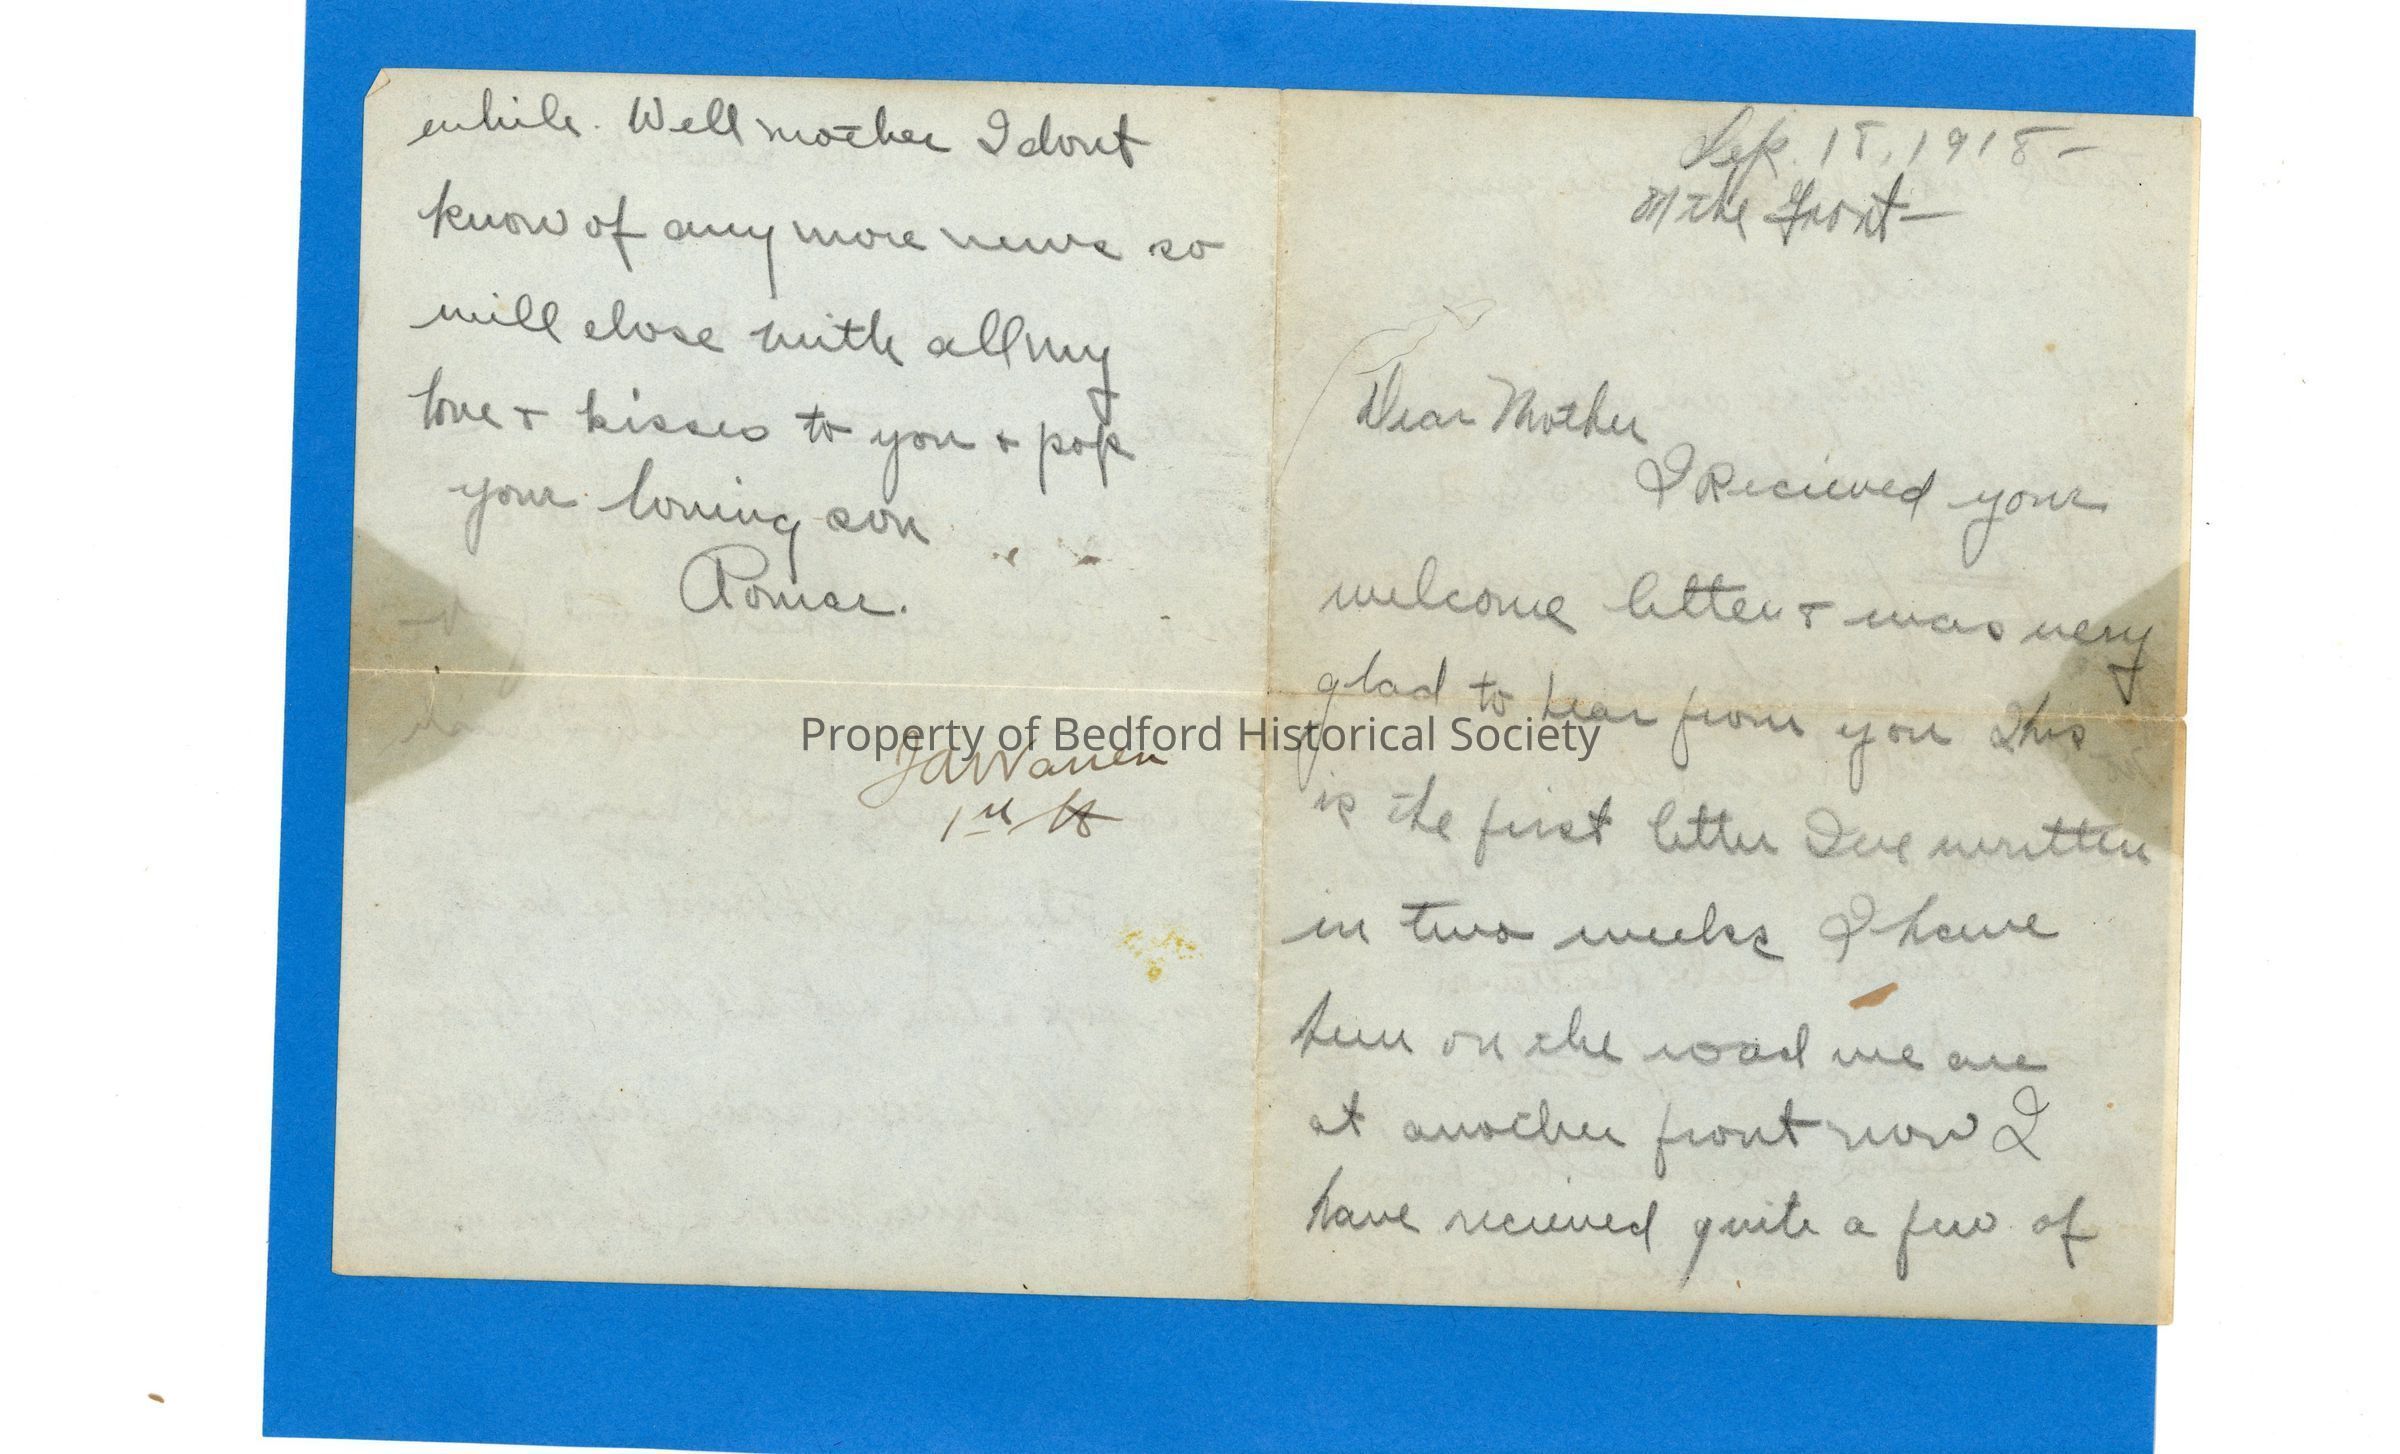 Sep. 18, 1918 -
At the Front -
Dear Mother
I Recieved your
welcome letter & was very
glad to hear from you This
is the first letter Ive written
in two weeks I have
been on the road we are
at another front now I
have recieved quite a few of
while. Well mother I dont
know of any more news so
will close with all my
love & kisses to you & pop
your loving son
JAWarren
1st Lt
Property of Bedford Historical Society